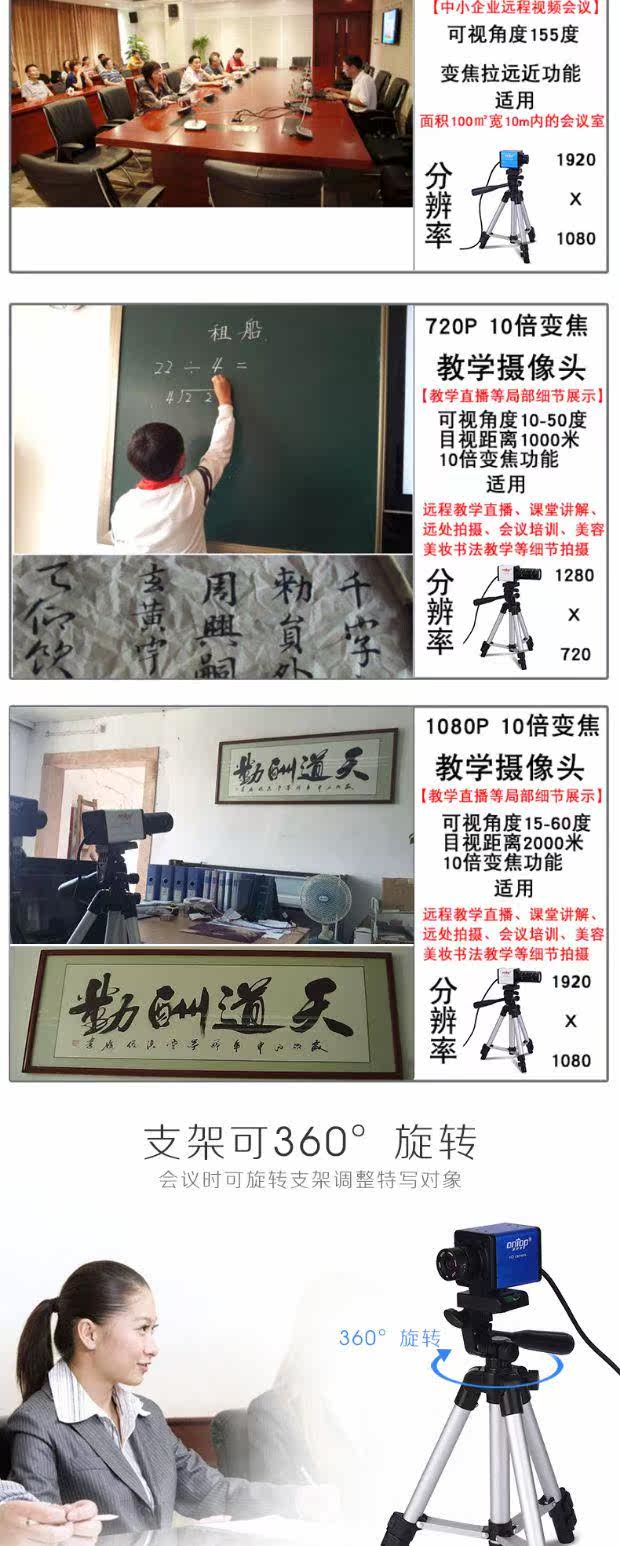 【中小企业远程视频会议】
可视角度155度
变焦拉远近功能
适用
面积100㎡宽10m内的会议室
分辨率
1920
X
1080
租船
22÷4=
4 22
720P 10倍变焦
教学摄像头
【教学直播等局部细节展示】
可视角度10-50度
目视距离1000米
10倍变焦功能
适用
远程教学直播、课堂讲解、
远处拍摄、会议培训、美容
美妆书法教学等细节拍摄
千字
勑員外
周興嗣
玄黃宇
分辨率
1280
X
720
天道酬勤
1080P 10倍变焦
教学摄像头
【教学直播等局部细节展示】
可视角度15-60度
目视距离2000米
10倍变焦功能
适用
远程教学直播、课堂讲解、
远处拍摄、会议培训、美容
美妆书法教学等细节拍摄
天道酬勤
分辨率
1920
X
1080
支架可360°旋转
会议时可旋转支架调整特写对象
ontop®
HD camera
360°旋转